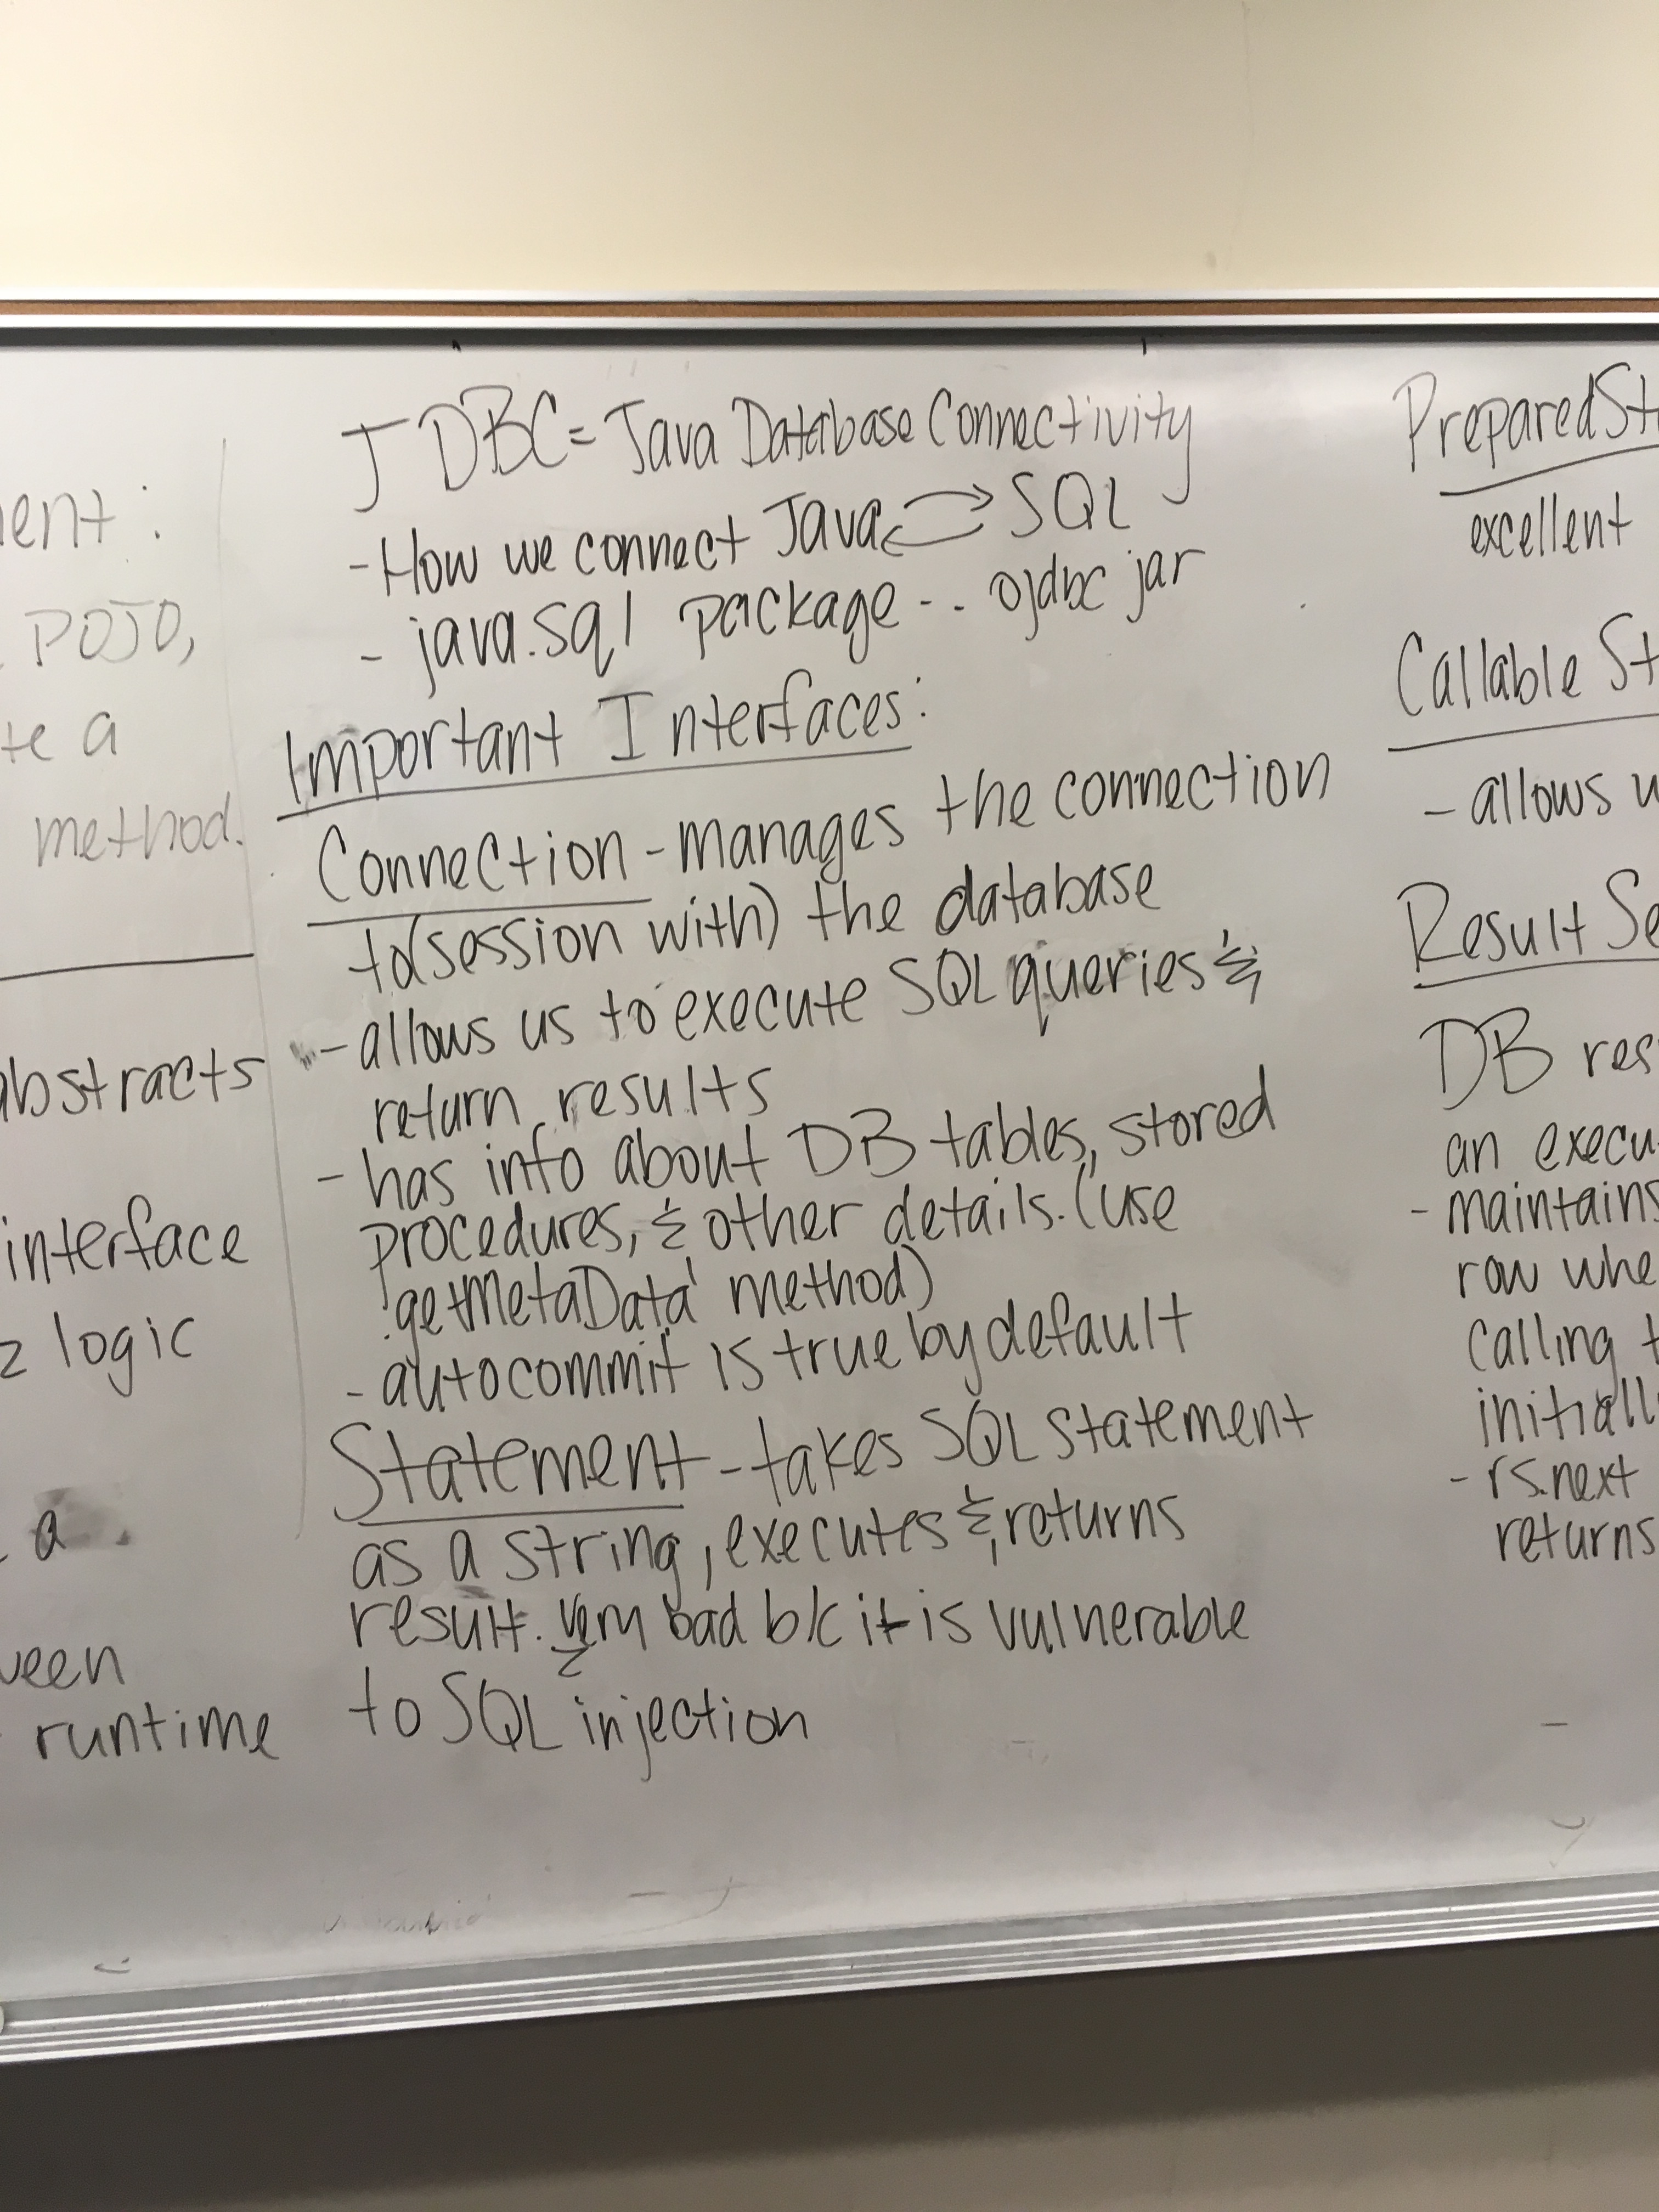 ent:
POJO,
te a
method.
abstracts
interface
z logic
a
ween
runtime
JDBC = Java Database Connectivity
- How we connect Java ⇄ SQL
- java.sql package -- ojdbc jar
Important Interfaces:
Connection - manages the connection
to(session with) the database
- allows us to execute SQL queries &
return results
- has info about DB tables, stored
procedures, & other details. (use
'getMetaData' method)
- autocommit is true by default
Statement - takes SQL statement
as a string, executes & returns
result. very bad b/c it is vulnerable
to SQL injection
PreparedSt
excellent
Callable St
- allows u
Result Se
DB res
an execu
- maintains
row whe
calling t
initiall
- rs.next
returns